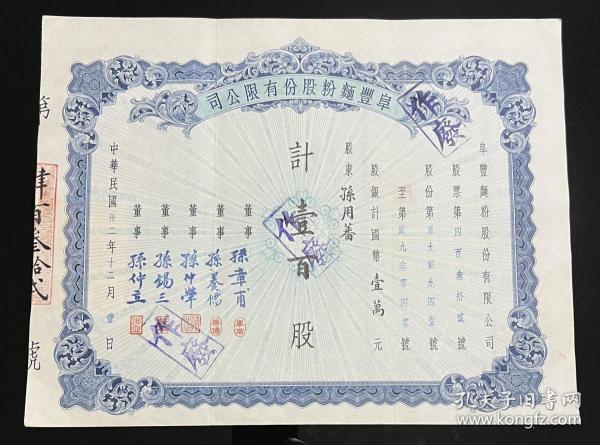 阜豐麵粉股份有限公司
阜豐麵粉股份有限公司
股票第四百叁拾貳號
股份第貳九貳九四壹號
至第貳九叁零四零號
股銀計國幣壹萬元
股東孫用蕃
計壹百股
董事 孫章甫
董事 孫養儒
董事 孫仲犖
董事 孫錫三
董事 孫仲立
中華民國卅二年十二月壹日
第肆百叁拾貳號
作廢
作廢
作廢
孔夫子旧书网
www.kongfz.com